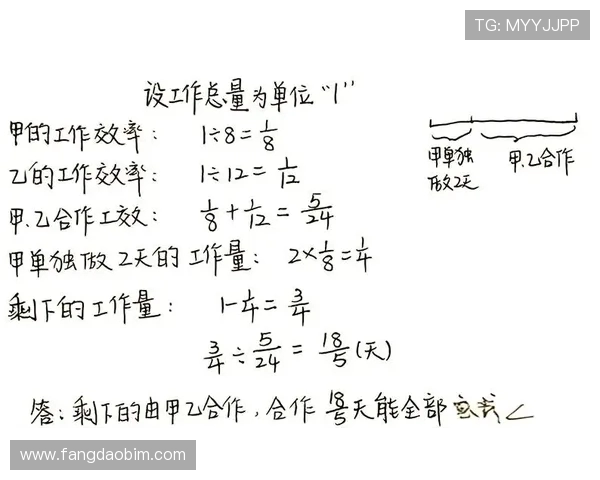 TG: MYYJJPP
设工作总量为单位“1”
甲的工作效率: 1÷8=1/8
乙的工作效率: 1÷12=1/12
甲.乙合作工效: 1/8+1/12=5/24
甲单独做2天的工作量: 2×1/8=1/4
剩下的工作量: 1-1/4=3/4
3/4÷5/24=18/5(天)
甲单独
做2天
甲.乙合作
答:剩下的由甲乙合作,合作18/5天能全部
www.fangdaobim.com